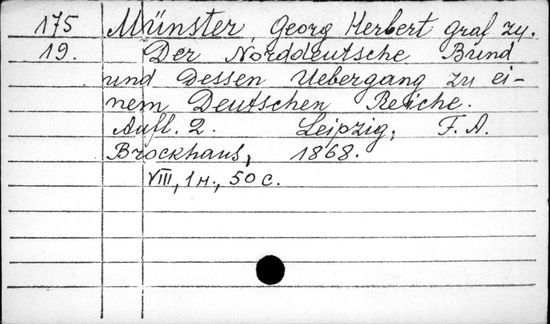 175 Münster, Georg Herbert graf zu.
19. Der Norddeutsche Bund
und dessen Uebergang zu ei-
nem Deutschen Reiche.
Aufl. 2. Leipzig, F. A.
Brockhaus, 1868.
VIII, 1 н., 50 с.